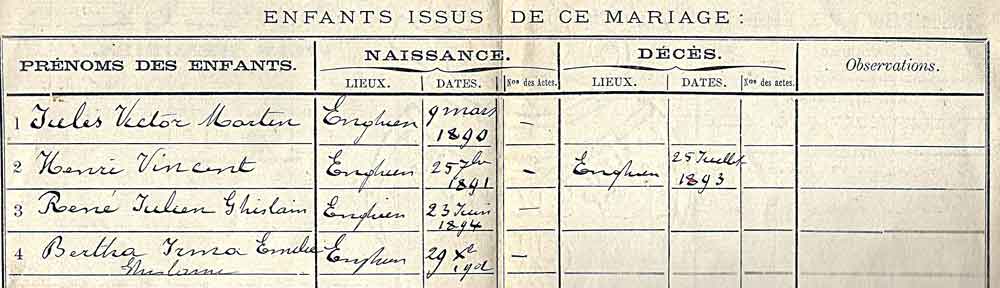 ENFANTS ISSUS DE CE MARIAGE :
PRÉNOMS DES ENFANTS. NAISSANCE. DÉCÈS. Observations.
LIEUX. DATES. Nos des Actes. LIEUX. DATES. Nos des Actes.
1 Jules Victor Martin Enghien 9 mars 1890 —
2 Henri Vincent Enghien 25 7bre 1891 — Enghien 25 Juillet 1893
3 René Julien Ghislain Enghien 23 Juin 1894 —
4 Bertha Irma Emelie Enghien 29 Xe —
Ghislaine